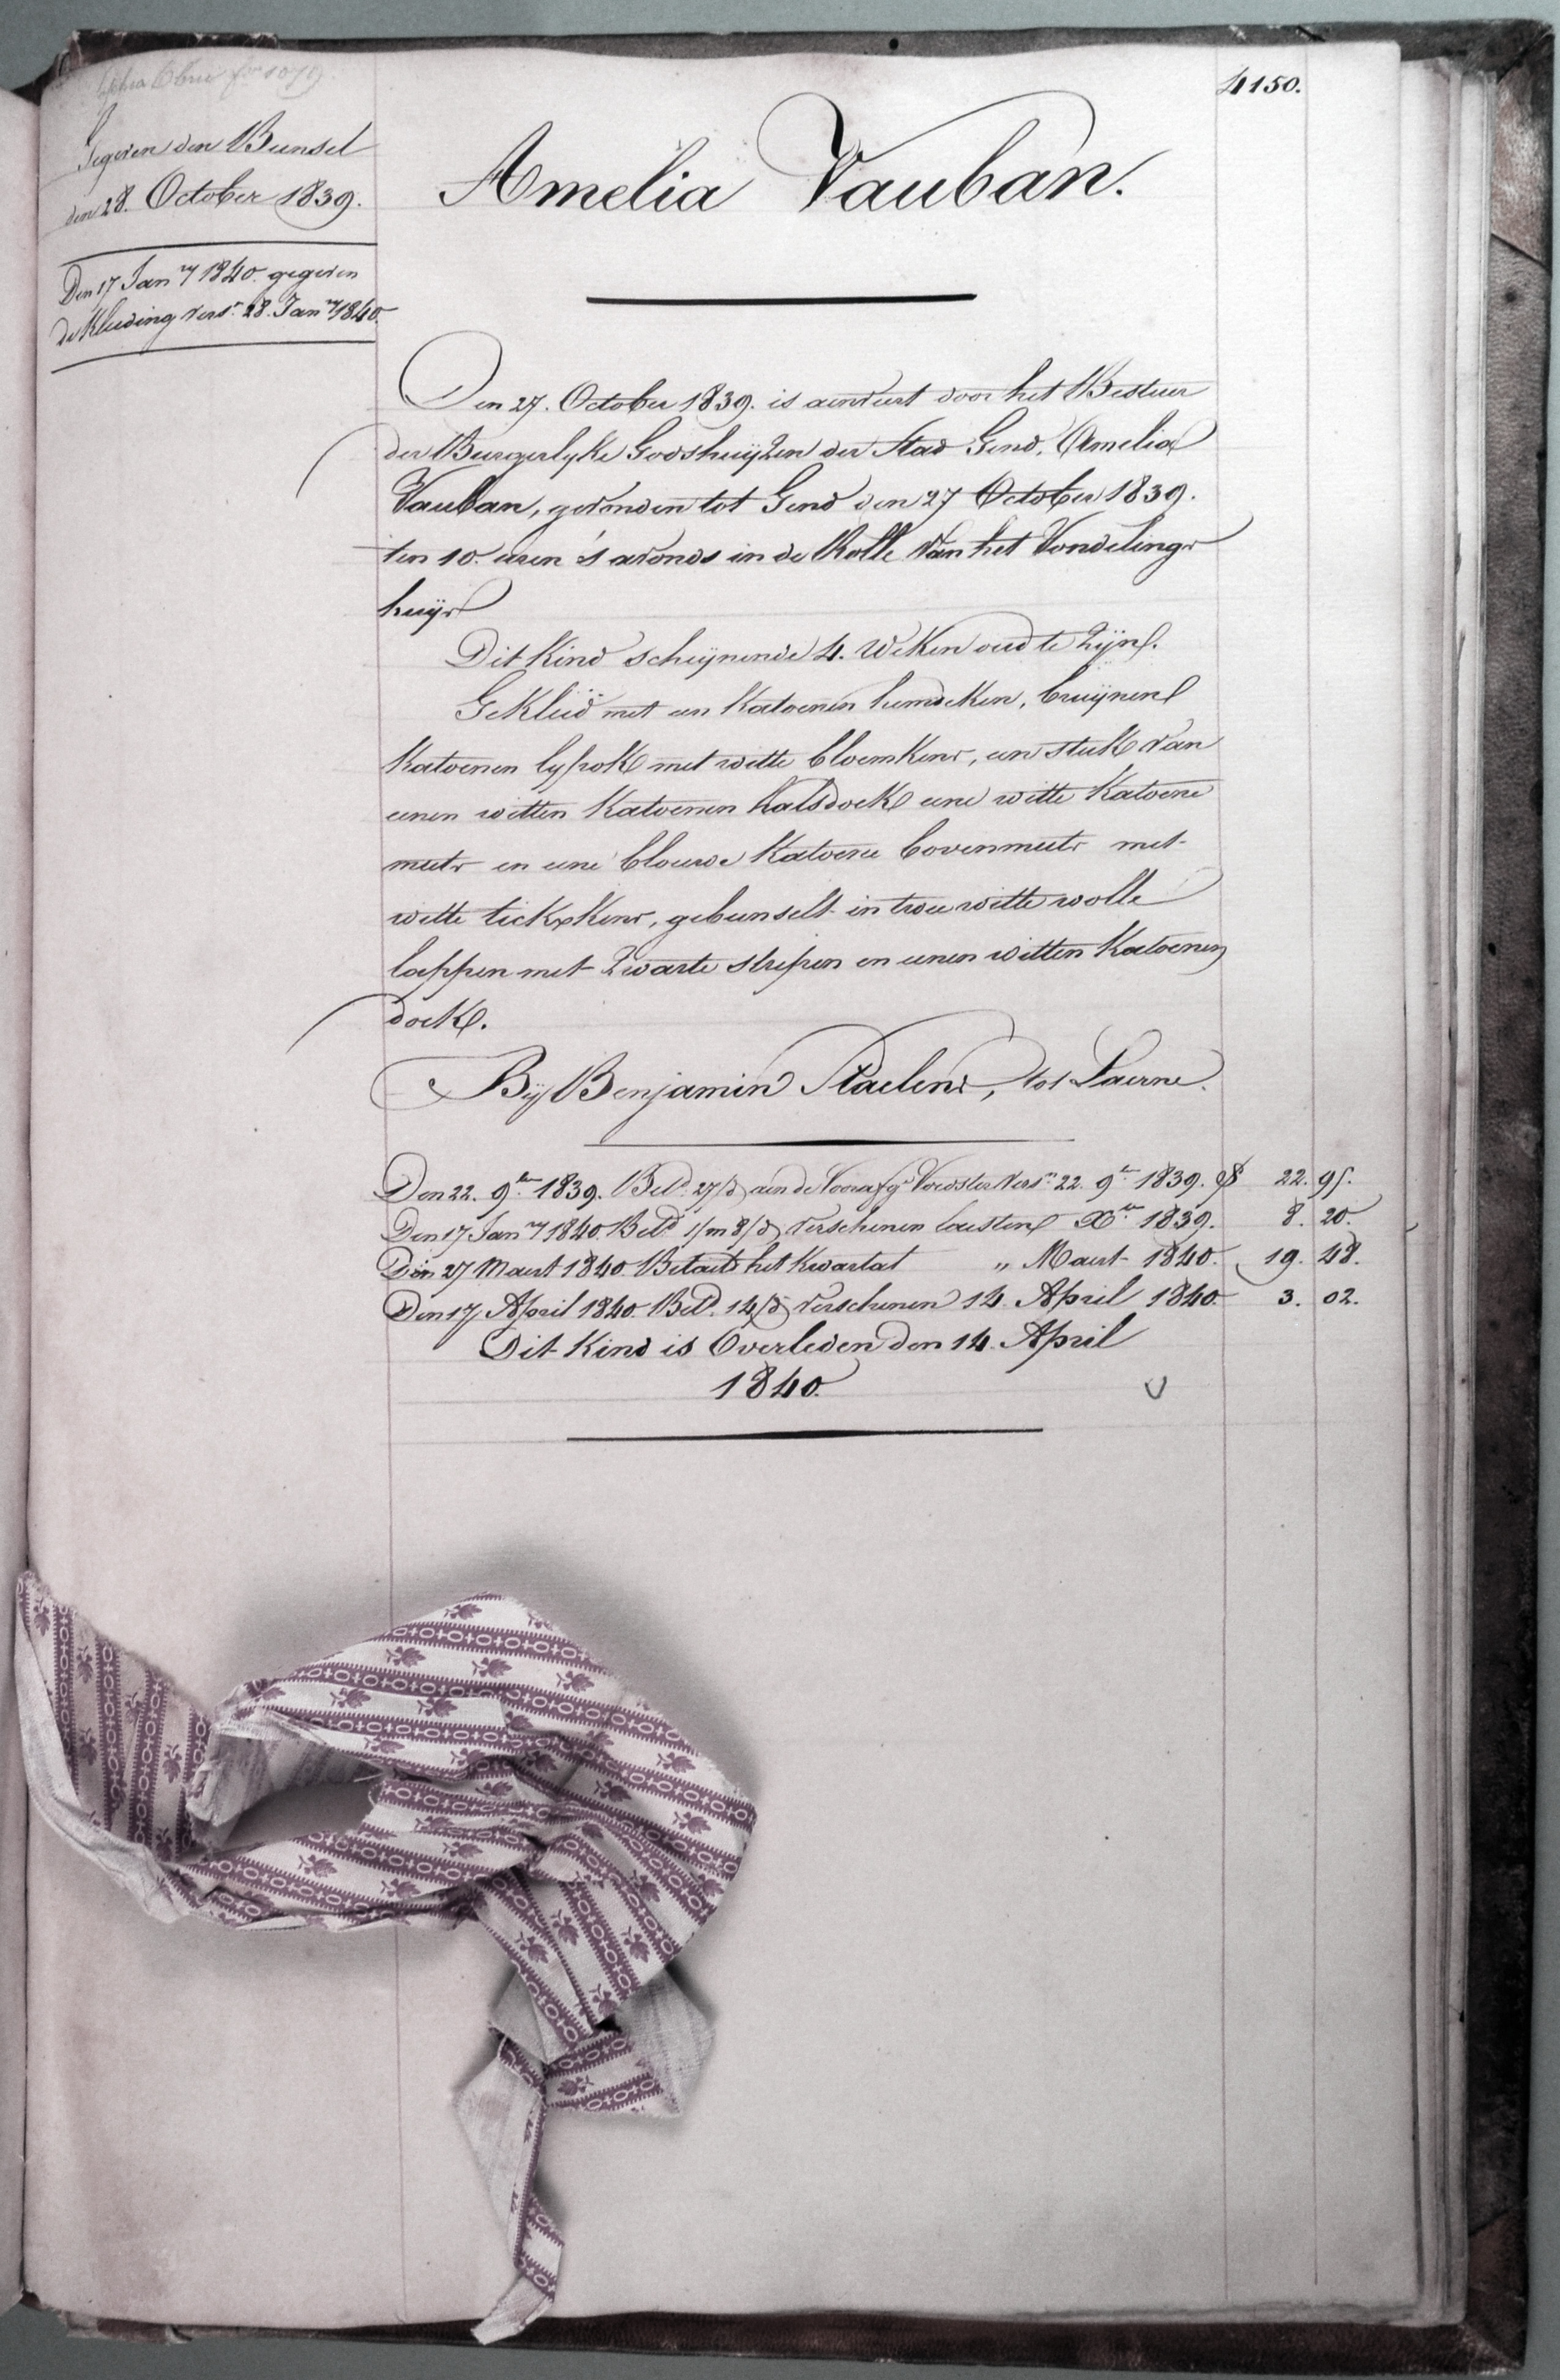 4150.
Gegeven den Bunsel
den 28. October 1839.
Den 17 Janry 1840. gegeven
de Kleeding versn. 28. Janry 1840.
Amelia Vauban.
Den 27. October 1839. is aenveert door het Bestuer
der Burgerlyke Godshuijzen der Stad Gend, Amelia
Vauban, gevonden tot Gend den 27 October 1839.
ten 10. uren 's avonds in de Rolle van het Vondelings
huijs
Dit Kind scheijnende 4. Weken oud te zijn.
Gekleed met een Katoenen hemdeken, bruijnen
Katoenen lyfrok met witte bloemkens, een stuk van
eenen witten Katoenen halsdoek eene witte Katoene
muts en eene blouwe Katoene bovenmuts met
witte tickskens, gebunselt in twee witte wolle
lappen met zwarte strepen en eenen witten Katoenen
doek.
By Benjamin Staelens, tot Laerne.
Den 22. 9ber 1839. Betd. 27/d aen de Voorafge Voedster versn 22. 9er 1839. 22. 95.
Den 17 Janry 1840 Betd 1/m 8/d verschenen laesten Xber 1839. 8. 20.
Den 27 Maert 1840. Betaelt het Kwartael „ Maert 1840. 19. 48.
Den 17 April 1840 Betd. 14/d verschenen 14 April 1840. 3. 02.
Dit Kind is Overleden den 14 April
1840.